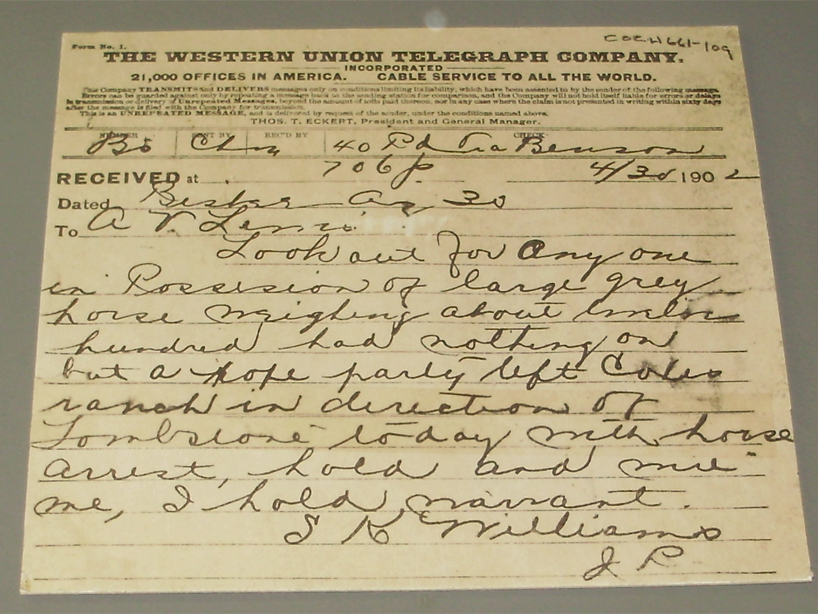 COCH 661-109
Form No. 1.
THE WESTERN UNION TELEGRAPH COMPANY.
INCORPORATED
21,000 OFFICES IN AMERICA. CABLE SERVICE TO ALL THE WORLD.
This Company TRANSMITS and DELIVERS messages only on conditions limiting its liability, which have been assented to by the sender of the following message.
Errors can be guarded against only by repeating a message back to the sending station for comparison, and the Company will not hold itself liable for errors or delays
in transmission or delivery of Unrepeated Messages, beyond the amount of tolls paid thereon, nor in any case where the claim is not presented in writing within sixty days
after the message is filed with the Company for transmission.
This is an UNREPEATED MESSAGE, and is delivered by request of the sender, under the conditions named above.
THOS. T. ECKERT, President and General Manager.
NUMBER SENT BY REC'D BY CHECK
40 Pd Via Benson
RECEIVED at 706 p 4/30 1902
Dated Bisbee Az 30
To A V Lewis
Look out for any one
in Possesion of large grey
horse weighing about twelve
hundred had nothing on
but a rope party left Coles
ranch in direction of
Tombstone today with horse
arrest, hold and wire
me, I hold warrant.
S K Williams
J P